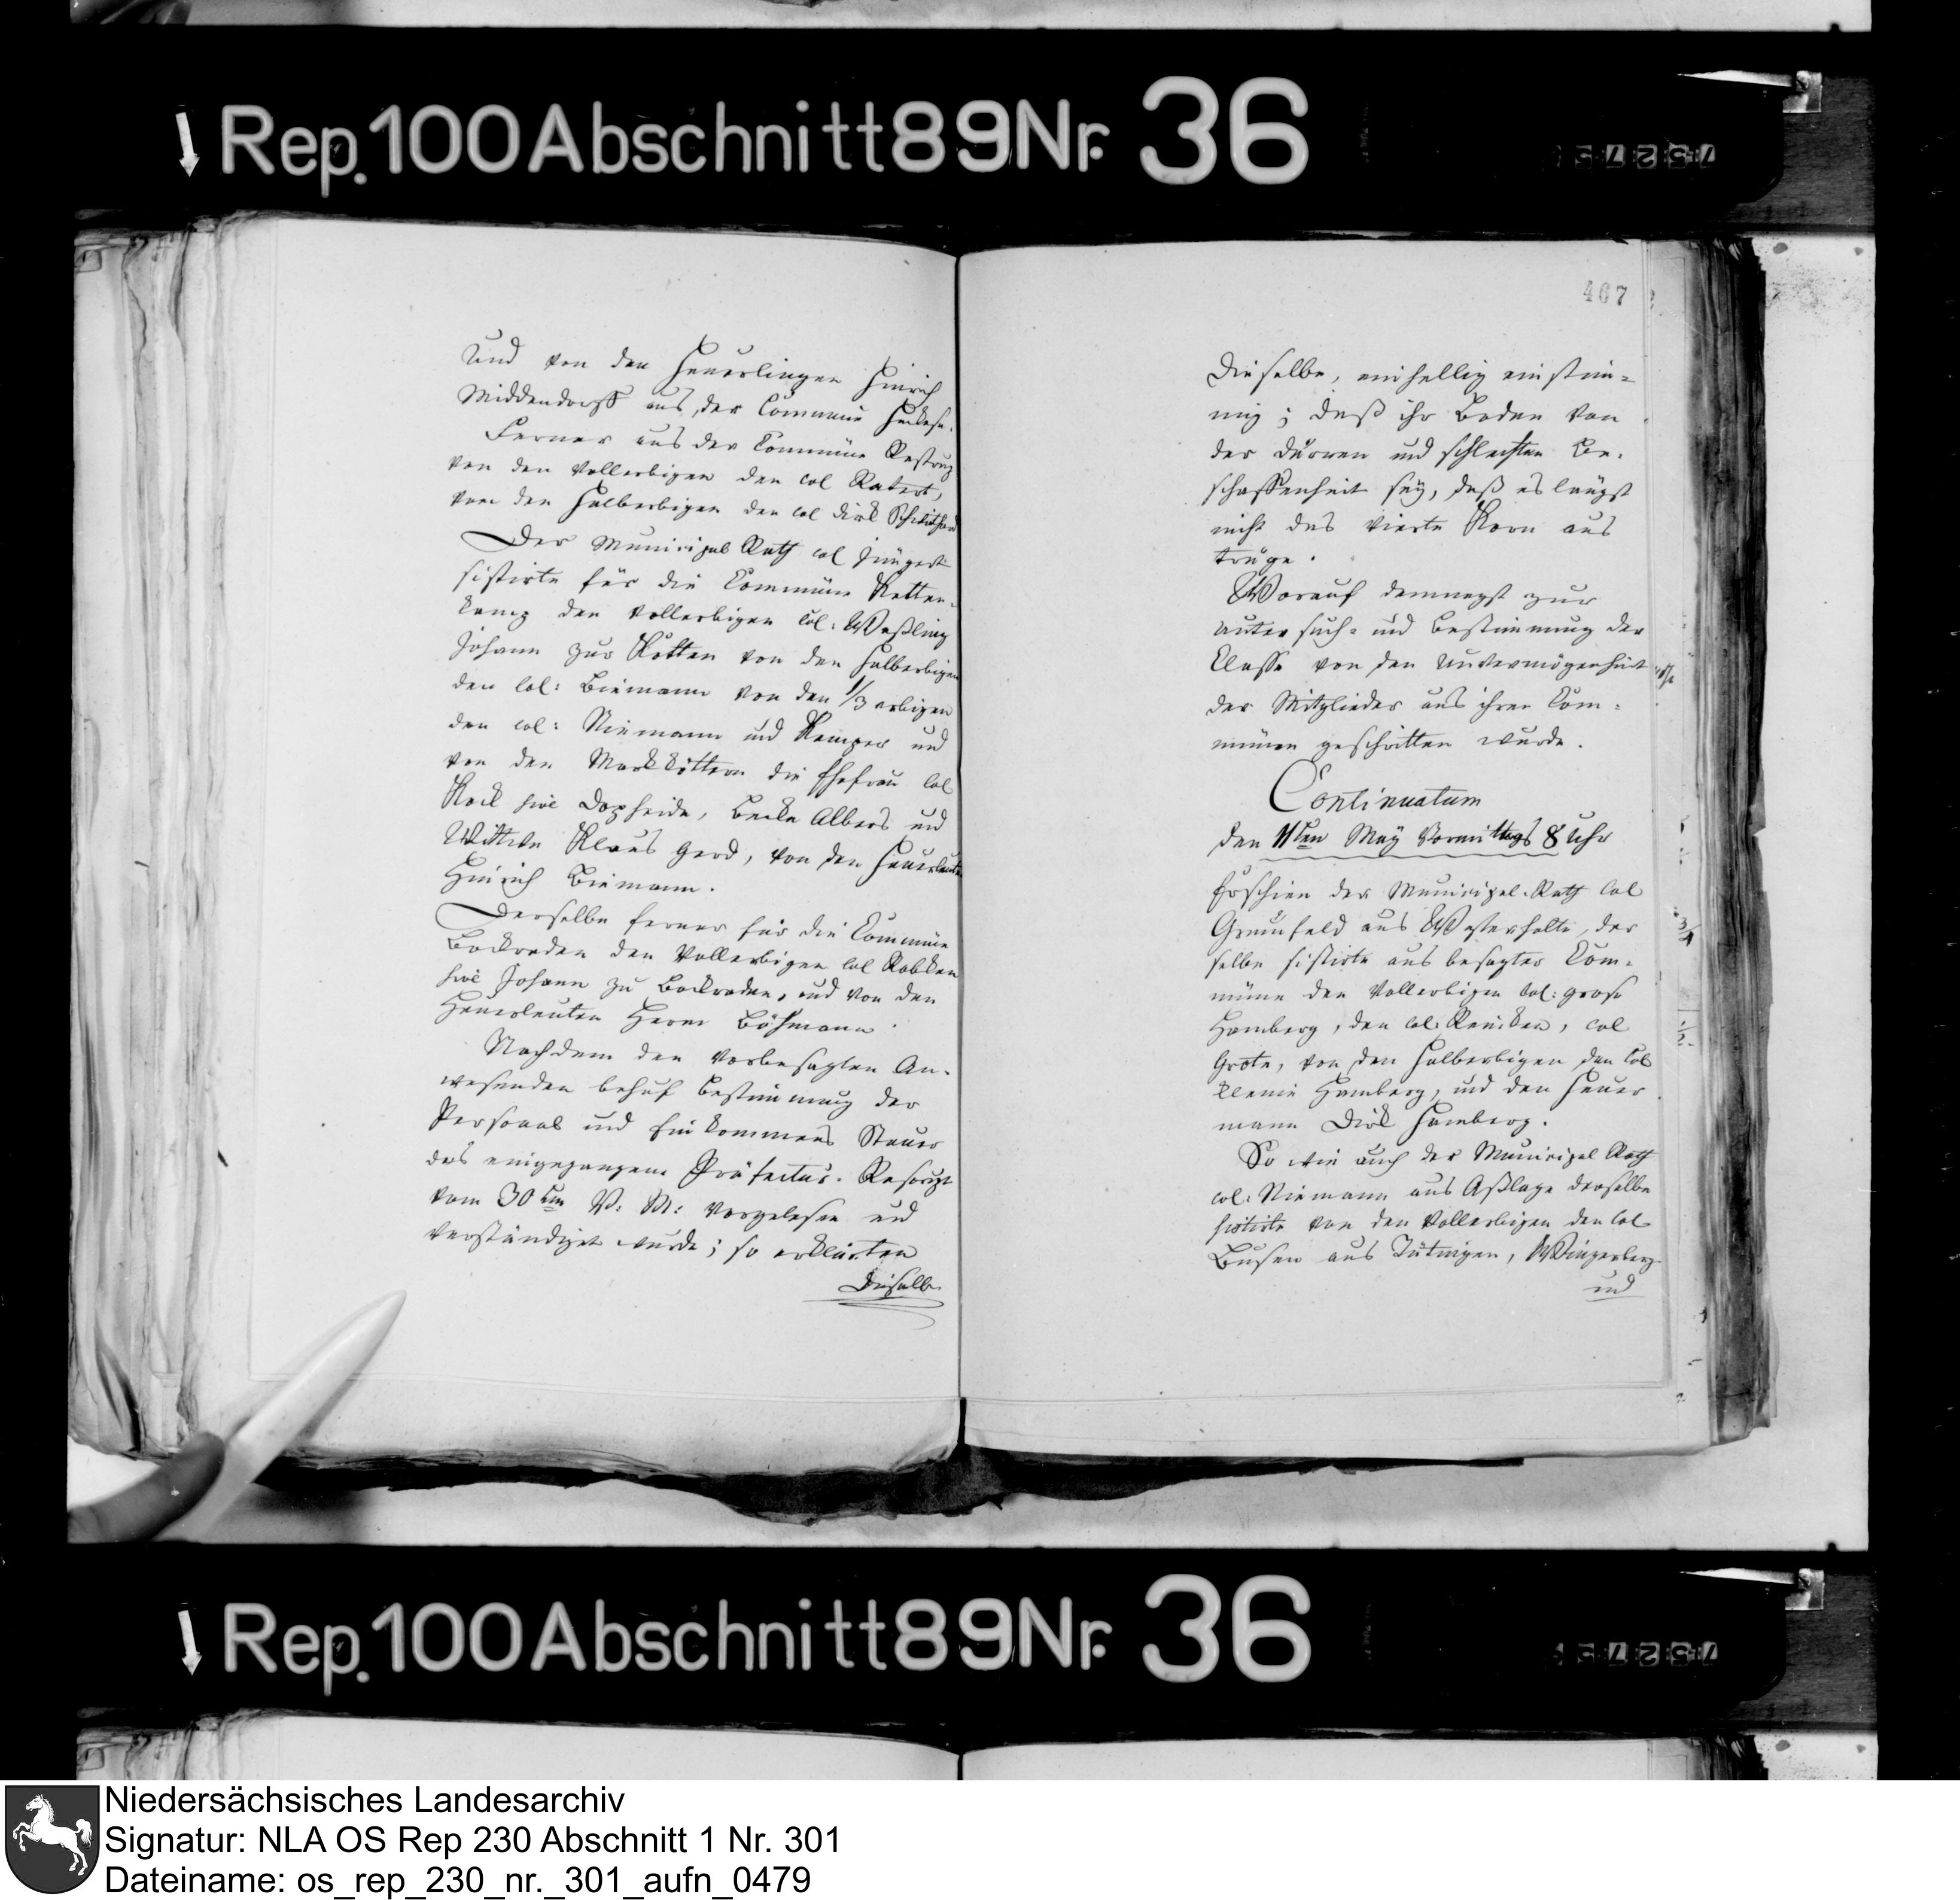 Rep. 100 Abschnitt 89 Nr. 36
und von den Heuerlingen Hinrich
Middendorff aus der Commüne Heckese.
Ferner aus der Commüne Restrup
von den Vollerbigen den col Ratert,
von den Halberbigen den col Dirk
Der Municipal Rath col Jüngert
sistirte für die Commüne Ketten-
kamp den Vollerbigen Col: Weßling
Johann zur Kötten von den Halberbigen
den Col: Biemann von den 1/3 erbigen
den col: Niemann und Kemper und
von den Markköttern die Ehefrau col
Kock sive Dopheide, Becke Albers und
Wittwe Klaus Gerd, von den Heuerleuten
Hinrich Biemann.
Derselbe ferner für die Commüne
Bockraden den Vollerbigen Col Robken
sive Johann zu Bockraden, und von den
Heuerleuten Herm Böhmann.
Nachdem den vorbesagten An-
wesenden behuf Bestimmung der
Personal und Einkommens Steuer
das eingegangene Präfectur-Rescript
vom 30ten v: M: vorgelesen und
verständiget wurde; so erklärten
Dieselbe
467
Dieselbe, einhellig einstim-
mig; daß ihr Boden von
der dürren und schlechten Be-
schaffenheit sey, daß es längst
nicht das vierte Korn aus
trüge.
Worauf demnegst zur
Untersuch- und Bestimmung der
Classe von den Unvermögenheit
der Mitglieder aus ihren Com-
münen geschritten wurde.
Continuatum
den 11ten May Vormittags 8 Uhr
Erschien der Municipal-Rath Col
Grünfeld aus Westerholte, der
selbe sistirte aus besagter Com-
müne den Vollerbigen Col: große
Hamberg, den Col: Renken, Col
Grote, von den Halberbigen den Col
kleine Hamberg, und den Heuer
mann Dirk Hamberg.
So wie auch der Municipal Rath
col: Niemann aus Aßlage derselbe
sistirte von den Vollerbigen den Col
Busen aus Tütingen, Wingerberg
und
Rep. 100 Abschnitt 89 Nr. 36
Niedersächsisches Landesarchiv
Signatur: NLA OS Rep 230 Abschnitt 1 Nr. 301
Dateiname: os_rep_230_nr._301_aufn_0479